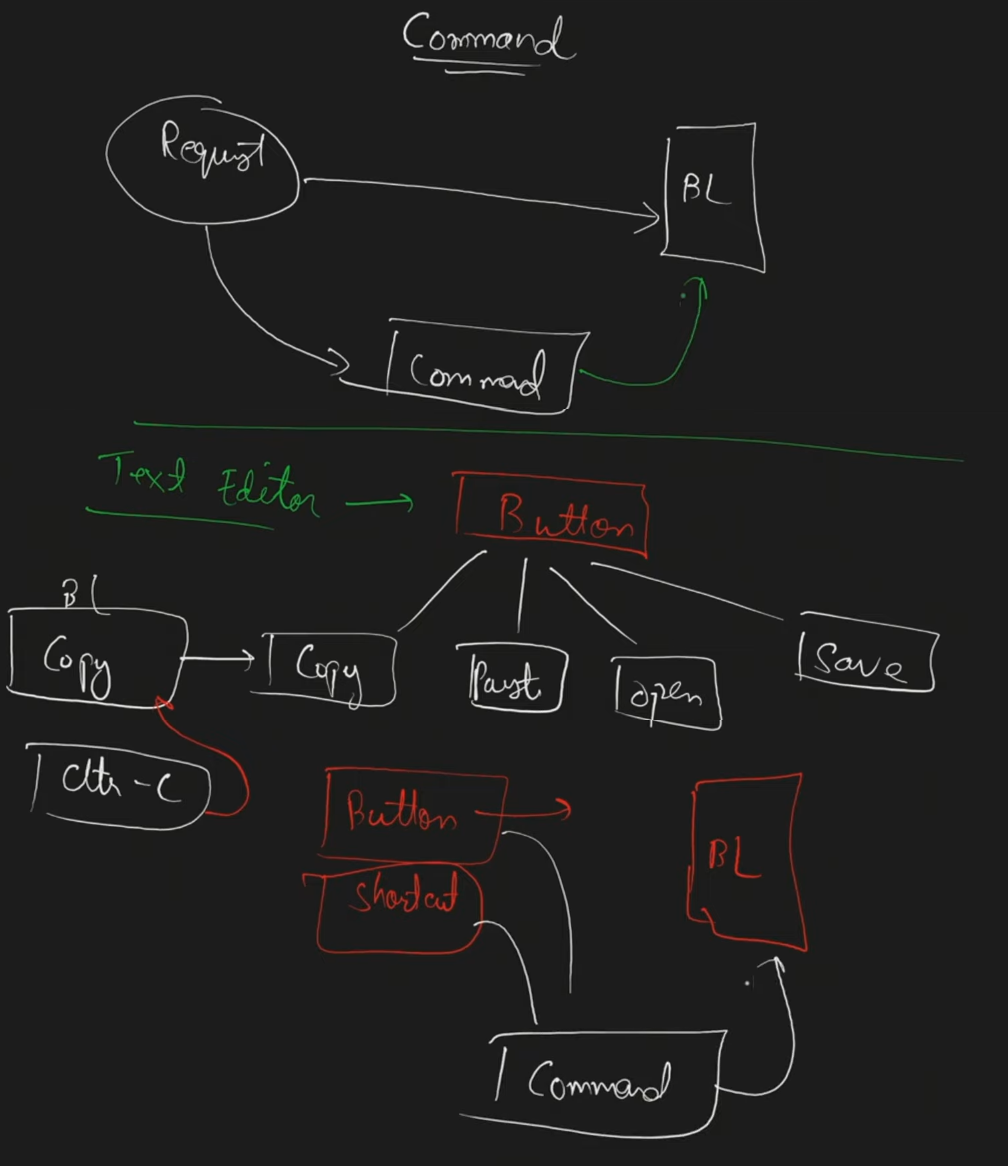 Command
Request
BL
Commad
Text Editor
Button
BL
Copy
Copy
Past
open
Save
Cltr-C
Button
Shortcut
BL
Command